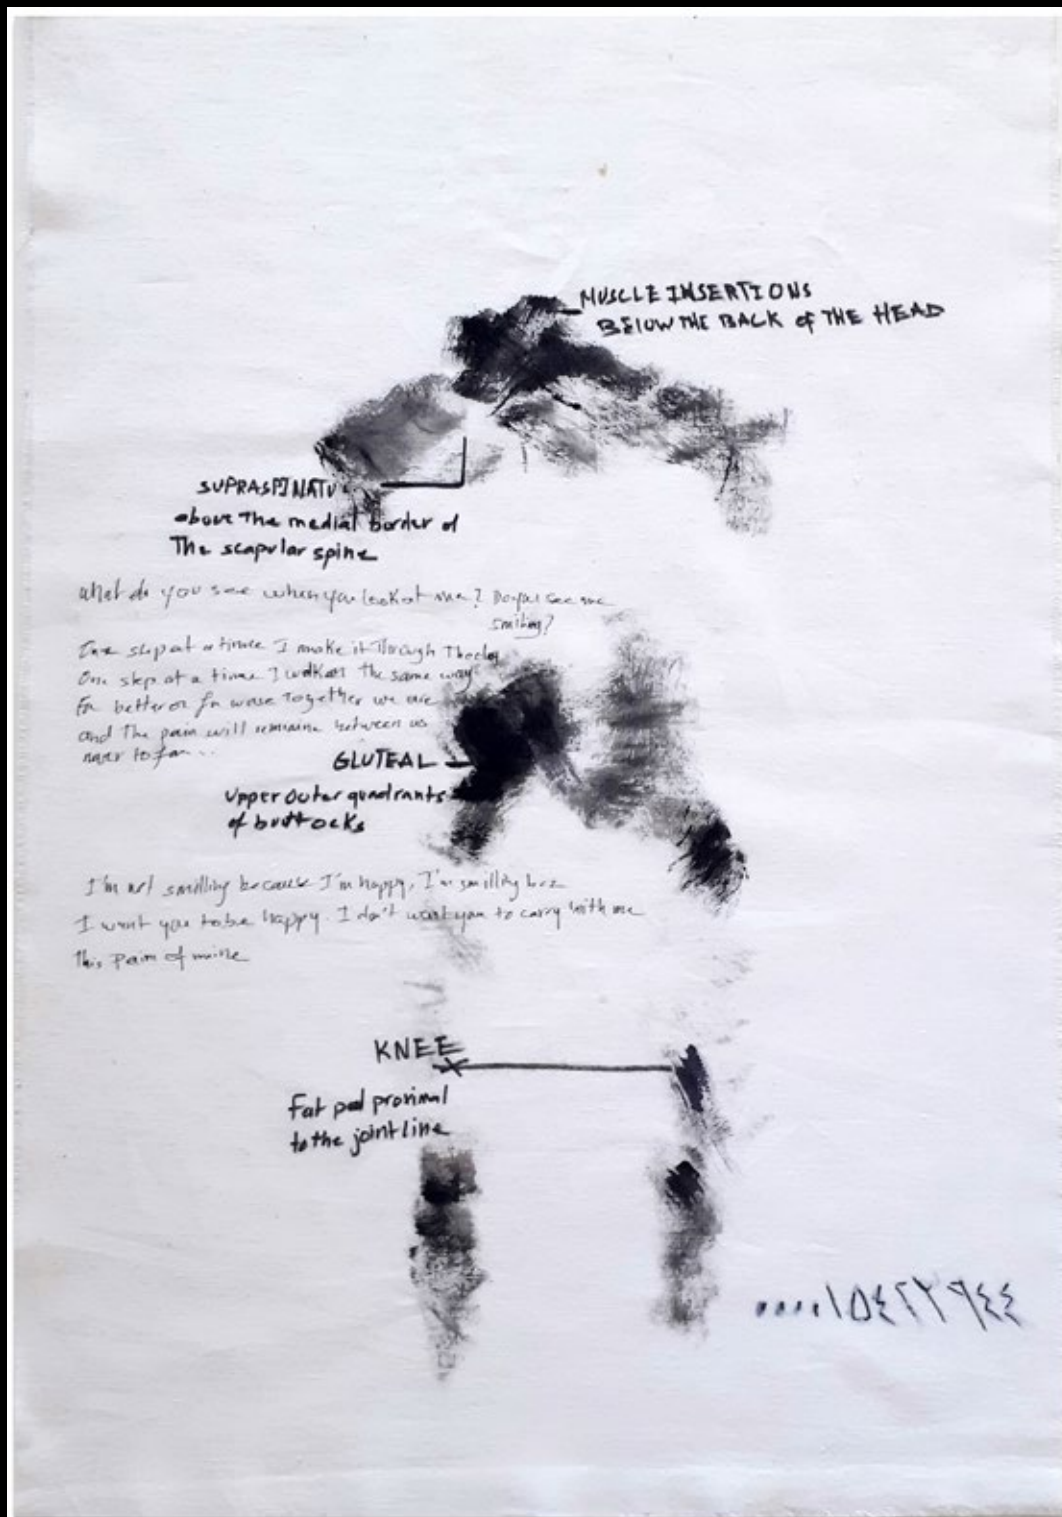 MUSCLE INSERTIONS
BElOW THE BACK of THE HEAD
SUPRASPINATU
above The medial border of
The scapular spine
what do you see when you look at me? Do you see me
smiling?
One step at a time I make it Through The day
One step at a time I walk on the same way
For better or for worse Together we are
and The pain will remaine between us
never to far ...
GLUTEAL
Upper outer quadrants
of buttocks
I'm not smilling because I'm happy, I'm smilling bcz
I want you to be happy. I don't want you to carry with me
this Pain of mine
KNEE
Fat pad proximal
to the joint line
٠٠٠٠١٥٤٢٧٩٤٤